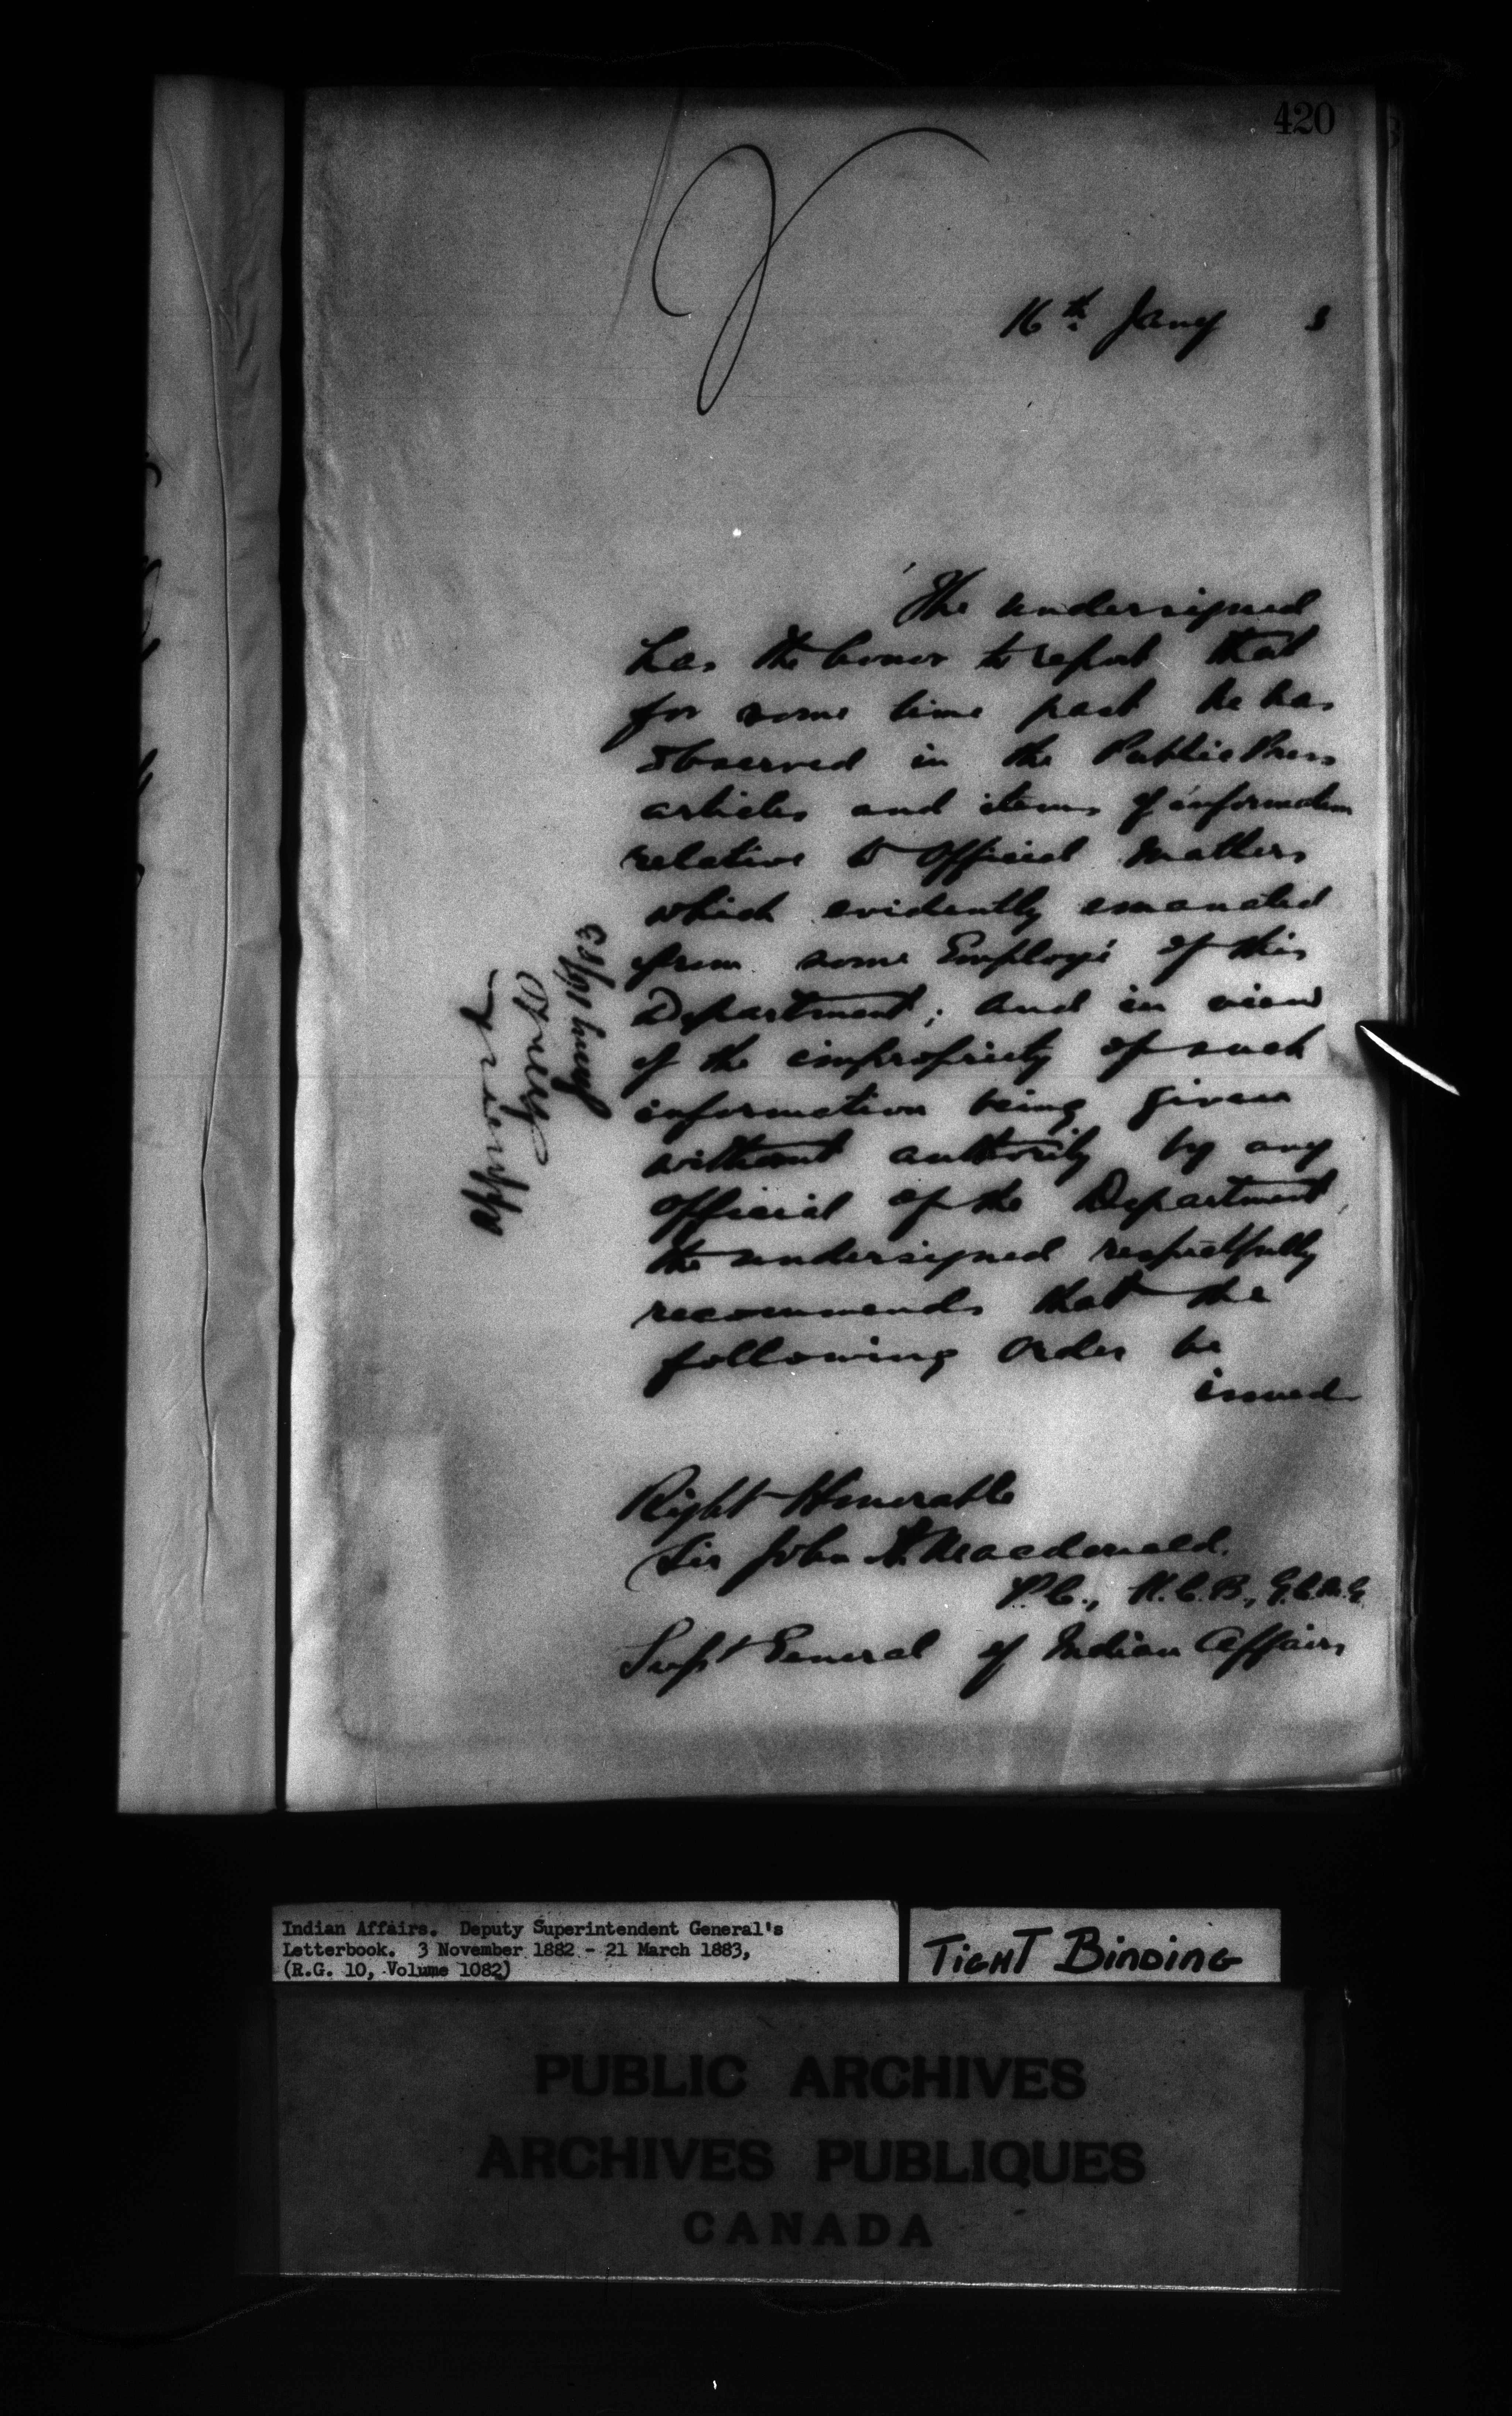 420
16th Jany 3
The undersigned
has the honor to report that
for some time past he has
observed in the Public Press
articles and items of information
relative to Official Matters
which evidently emanated
from some Employé of this
Department; and in view
of the impropriety of such
information being given
without authority by any
Official of the Department,
the undersigned respectfully
recommends that the
following Order be
issued
Approved
Jany 16/83
Right Honorable
Sir John A. Macdonald.
P.C., K.C.B., G.C.M.G
Supt General of Indian Affairs
Indian Affairs. Deputy Superintendent General's
Letterbook. 3 November 1882 - 21 March 1883,
(R.G. 10, Volume 1082)
TIGHT BINDING
PUBLIC ARCHIVES
ARCHIVES PUBLIQUES
CANADA